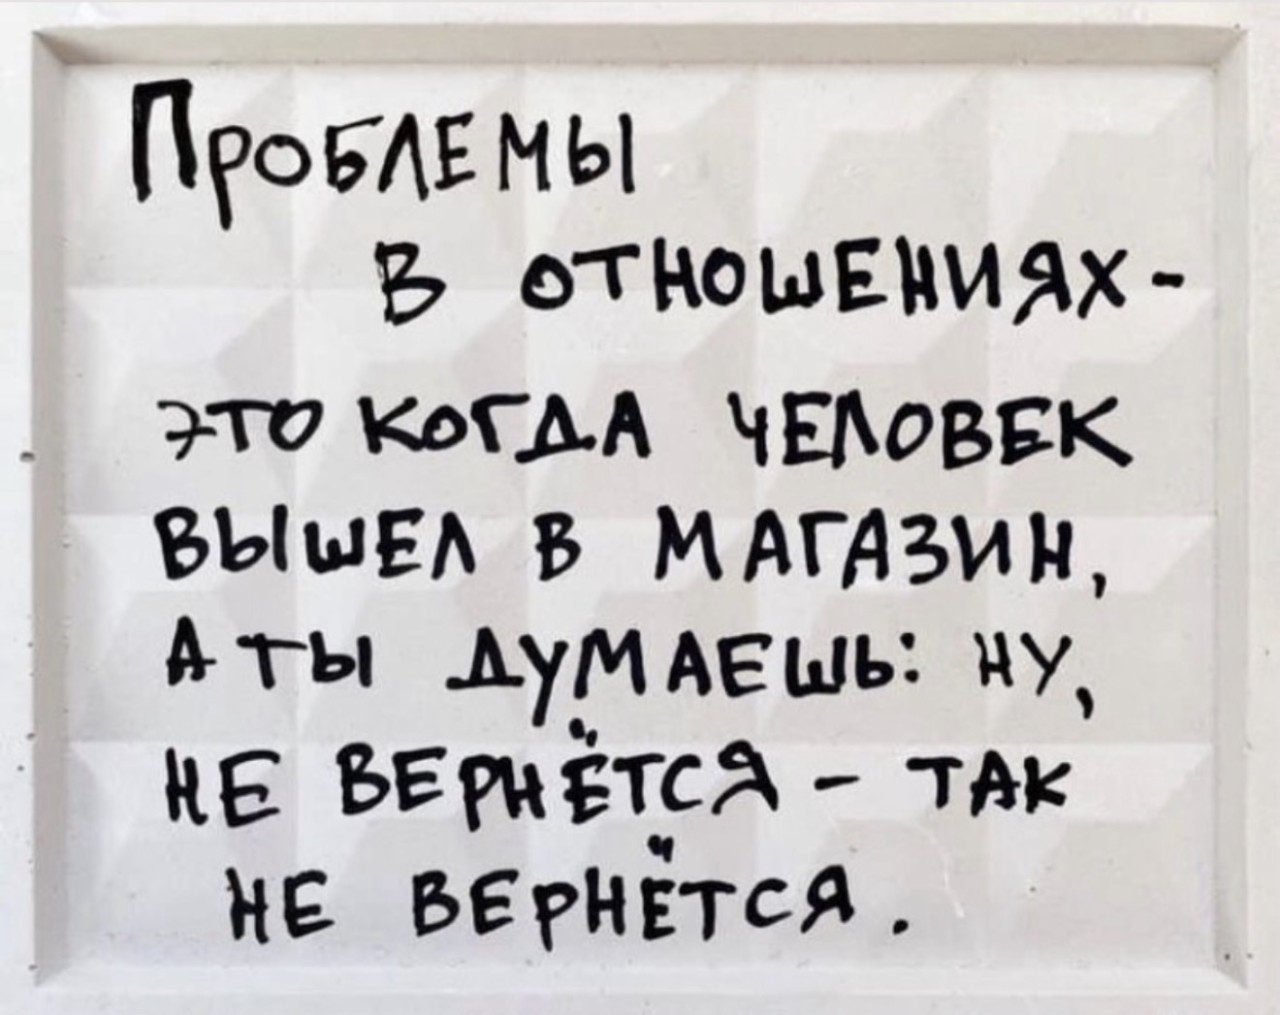 Проблемы
в отношениях -
это когда человек
вышел в магазин,
а ты думаешь: ну,
не вернётся - так
не вернётся.